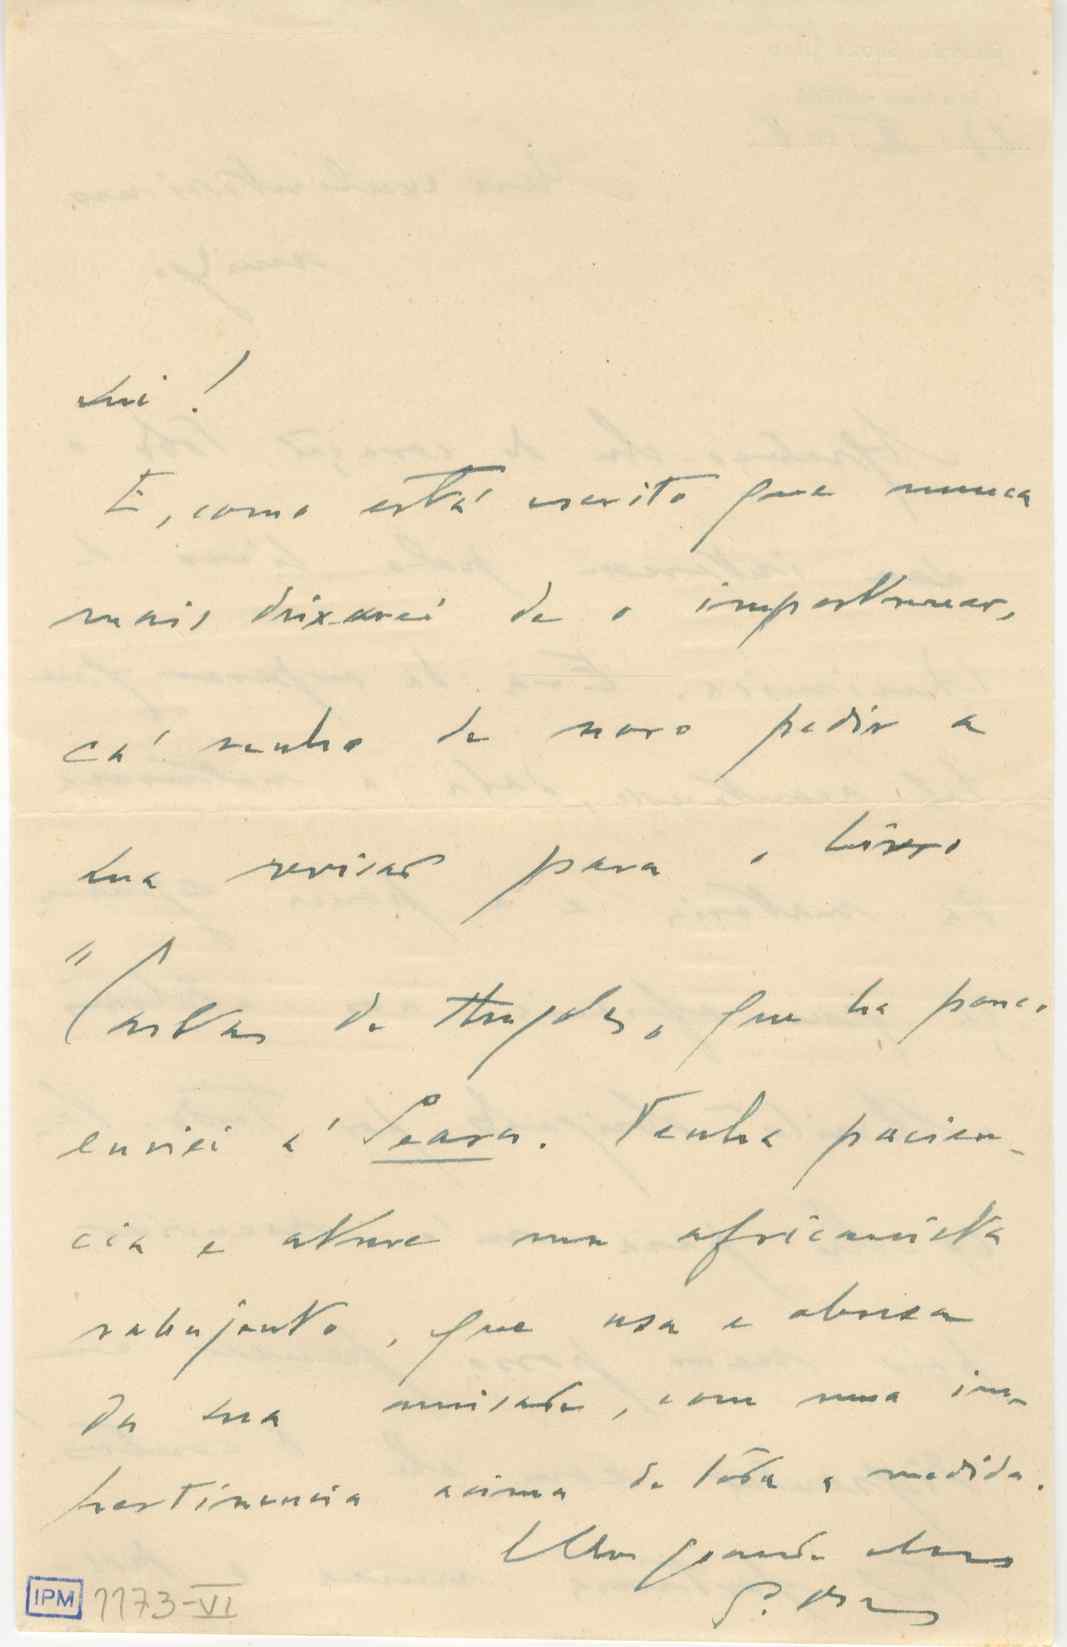 sui!
E, como está escrito que nunca
mais deixarei de o importunar,
cá venho de novo pedir a
sua revisão para o livro
"Cartas de que ha pouco
enviei á Seara. Tenha pacien-
cia e ature um africanista
rabujento, que usa e abusa
da sua amisade, com uma im-
pertinencia acima de tôda a medida.
Um grande abraço
G.
IPM 1173-VI